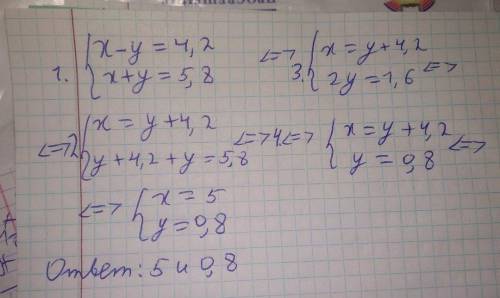 1. { x-y=4,2
x+y=5,8
<=>2. { x=y+4,2
y+4,2+y=5,8
<=> 3. { x=y+4,2
2y=1,6 <=>
<=>4.<=> { x=y+4,2
y=0,8 <=>
<=> { x=5
y=0,8
Ответ: 5 и 0,8